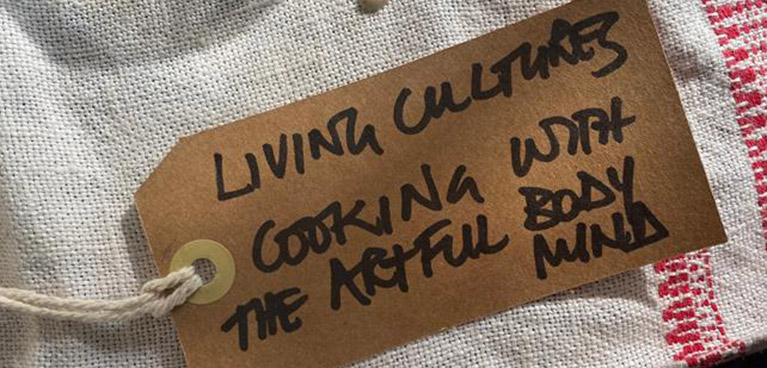 LIVING CULTURES
COOKING WITH
THE ARTFUL BODY
MIND